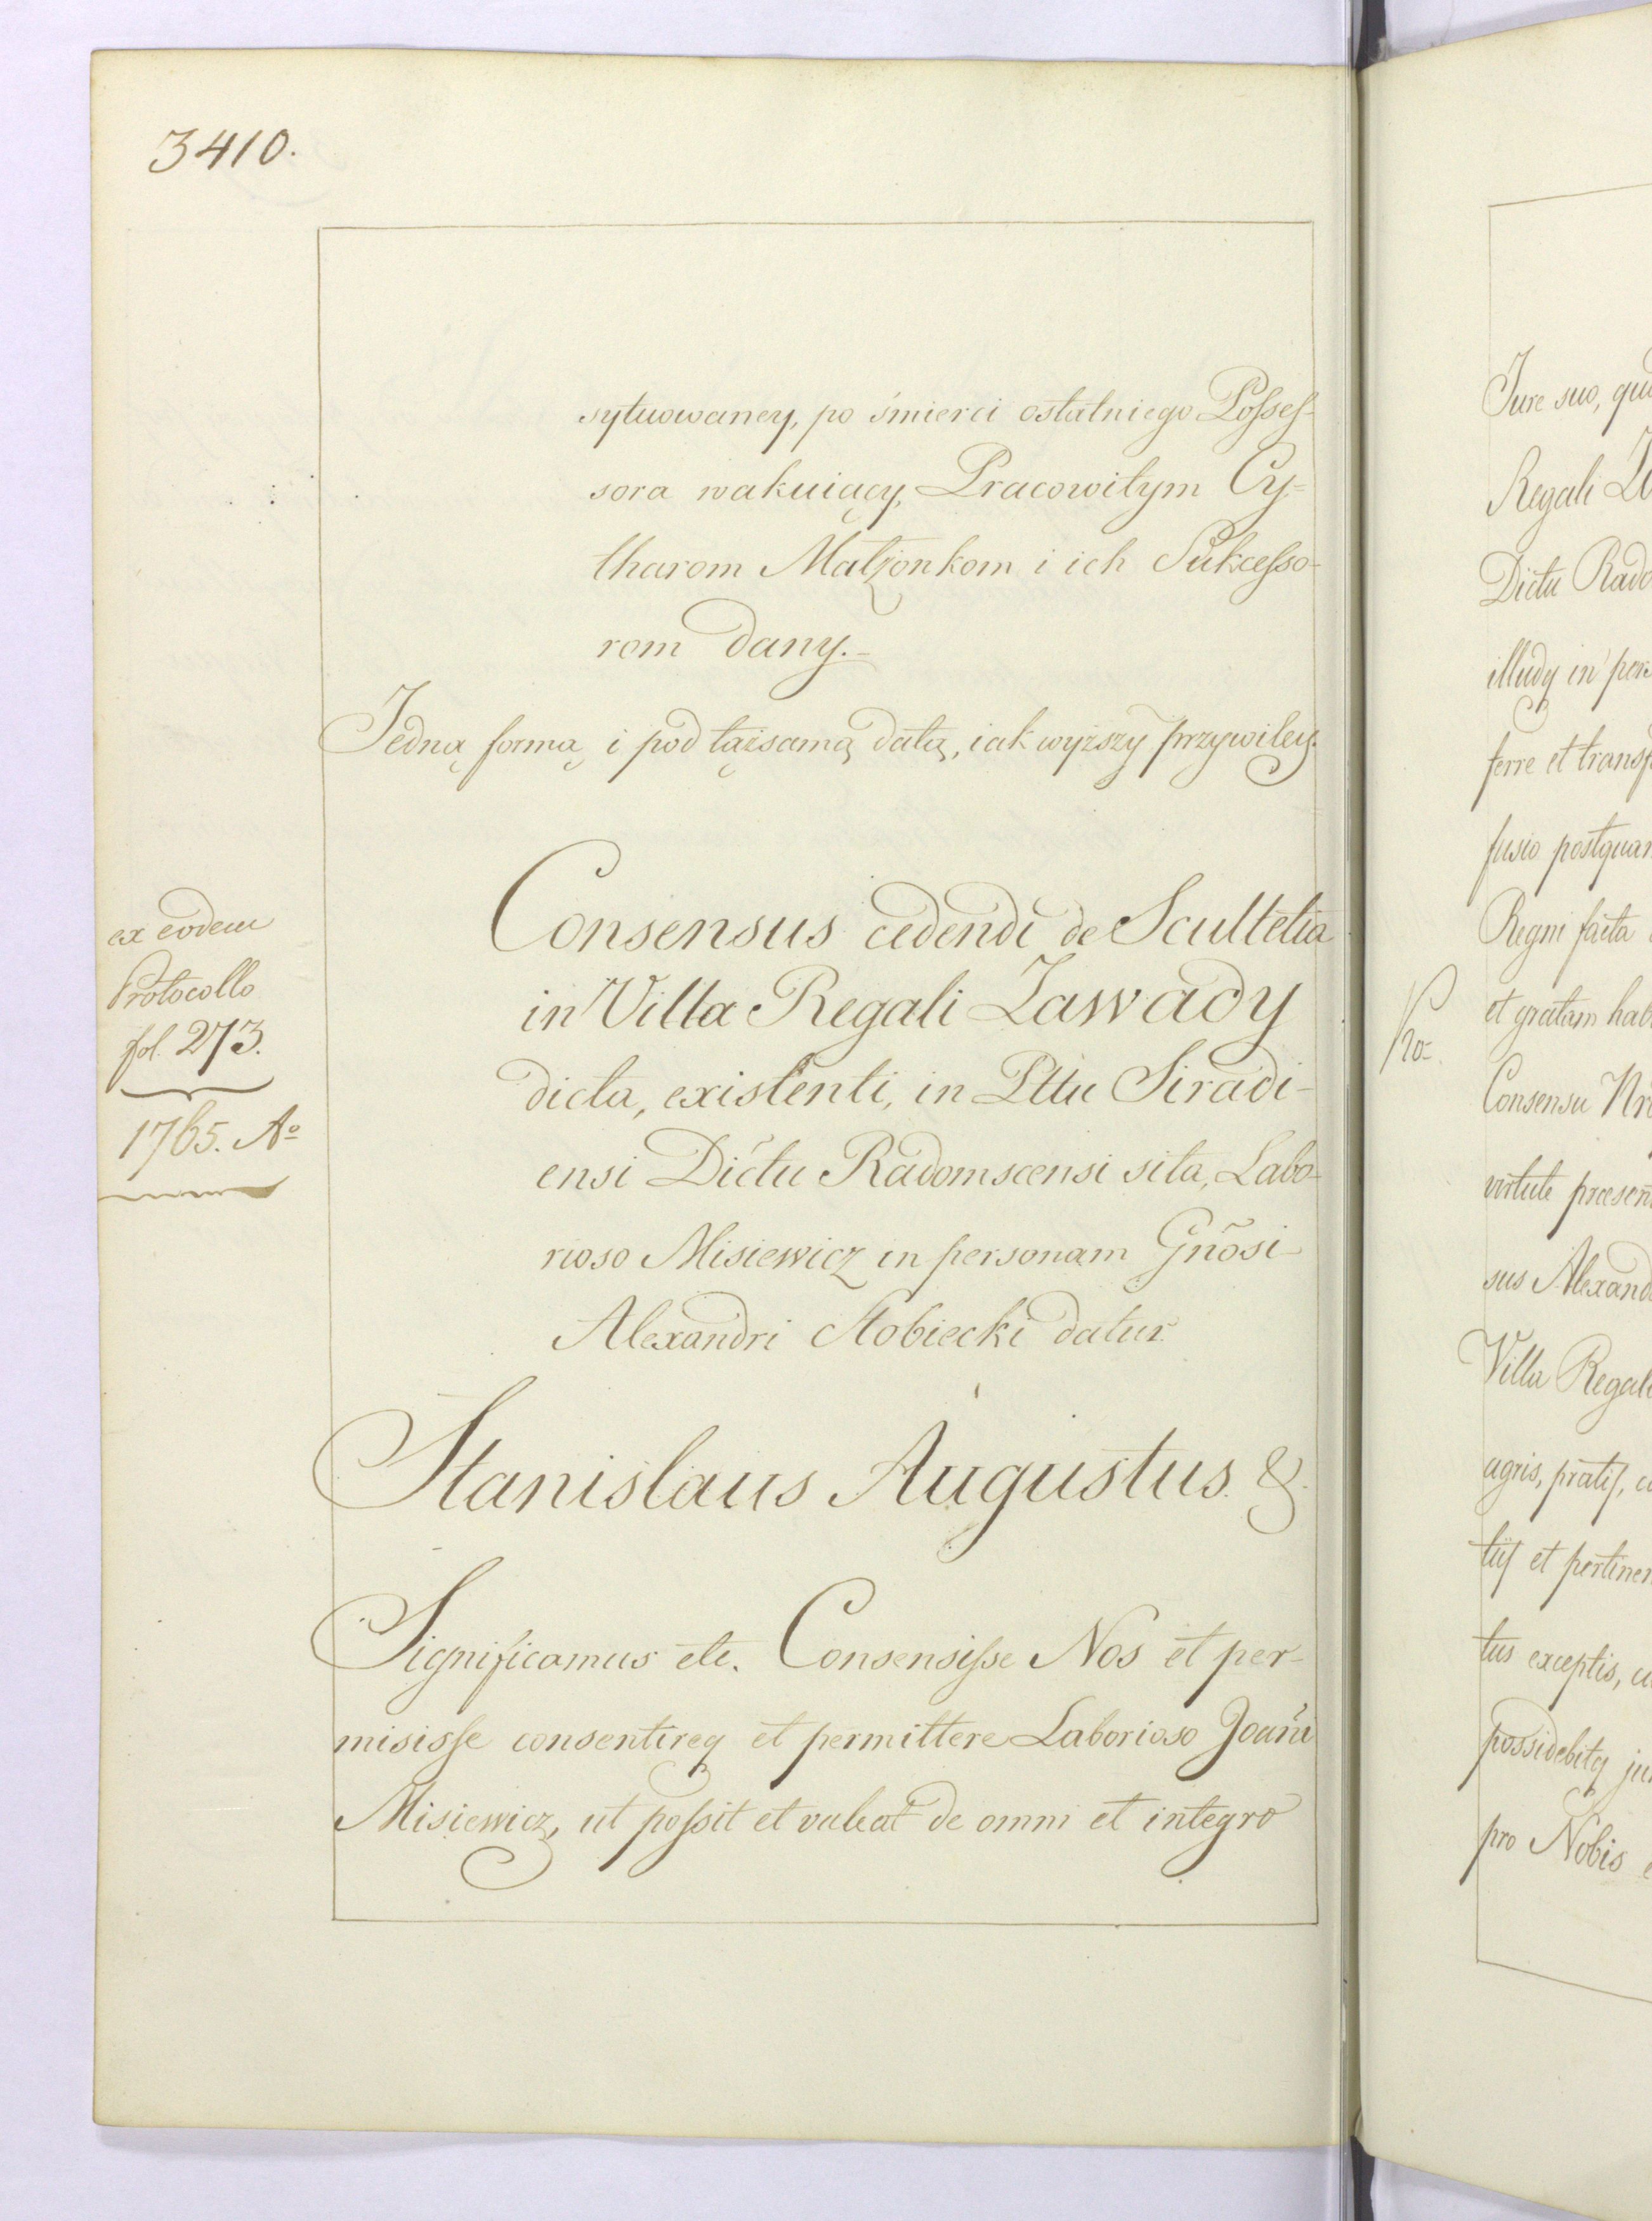 3410.
sytuowaney, po śmierci ostatniego Posses-
sora wakuiący, Pracowitym Cy=
tharom Małżonkom i ich Sukcesso-
rom dany.-
Jedną formą i pod tążsamą datą, iak wyższy przywiley.
ex eodem
Protocollo
fol. 273.
1765. Aº
Consensus cedendi de Scultetia
in Villa Regali Zawady
dicta, existenti, in Pttu Siradi-
ensi Dictu Radomscensi sita, Labo-
rioso Misiewicz in personam Gnõsi
Alexandri Stobiecki datur.
Stanislaus Augustus &.
Significamus etc. Consensisse Nos et per-
misisse consentireq et permittere Laborioso Joañi
Misiewicz, ut possit et valeat de omni et integro
Jure suo,
Regali
Dictu
illudq in
ferre et
fusio
Regni facta
et gratam
Consensu
virtute
sus
Villa
agris, pratis,
tijs et
tus exceptis,
possidebitq
pro Nobis